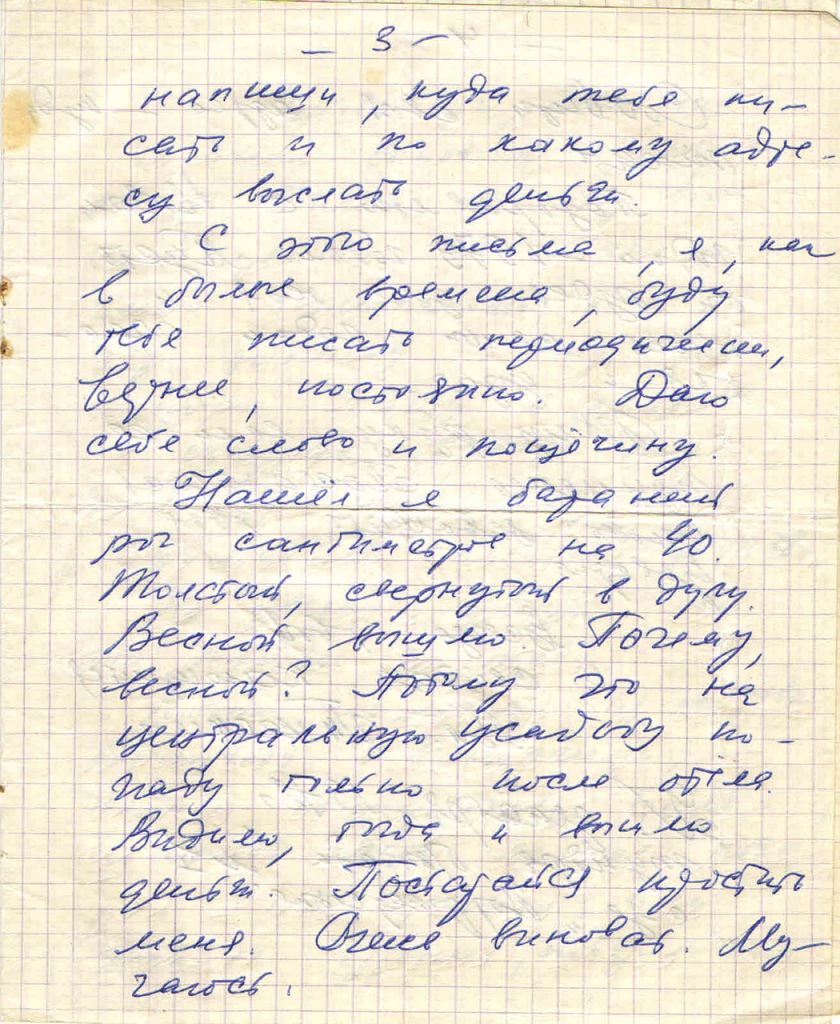 - 3 -
напиши, куда тебе пи-
сать и по какому адре-
су выслать деньги.
С этого письма, я, как
в былые времена, буду
тебе писать периодически,
вернее, постоянно. Даю
себе слово и пощёчину.
Нашёл я бараньи
рог сантиметров на 40.
Толстый, свернутый в дугу.
Весной вышлю. Почему,
весной? Потому что на
центральную усадьбу по-
паду только после отёла.
Видимо, тогда и вышлю
деньги. Постарайся простить
меня. Очень виноват. Му-
чаюсь.